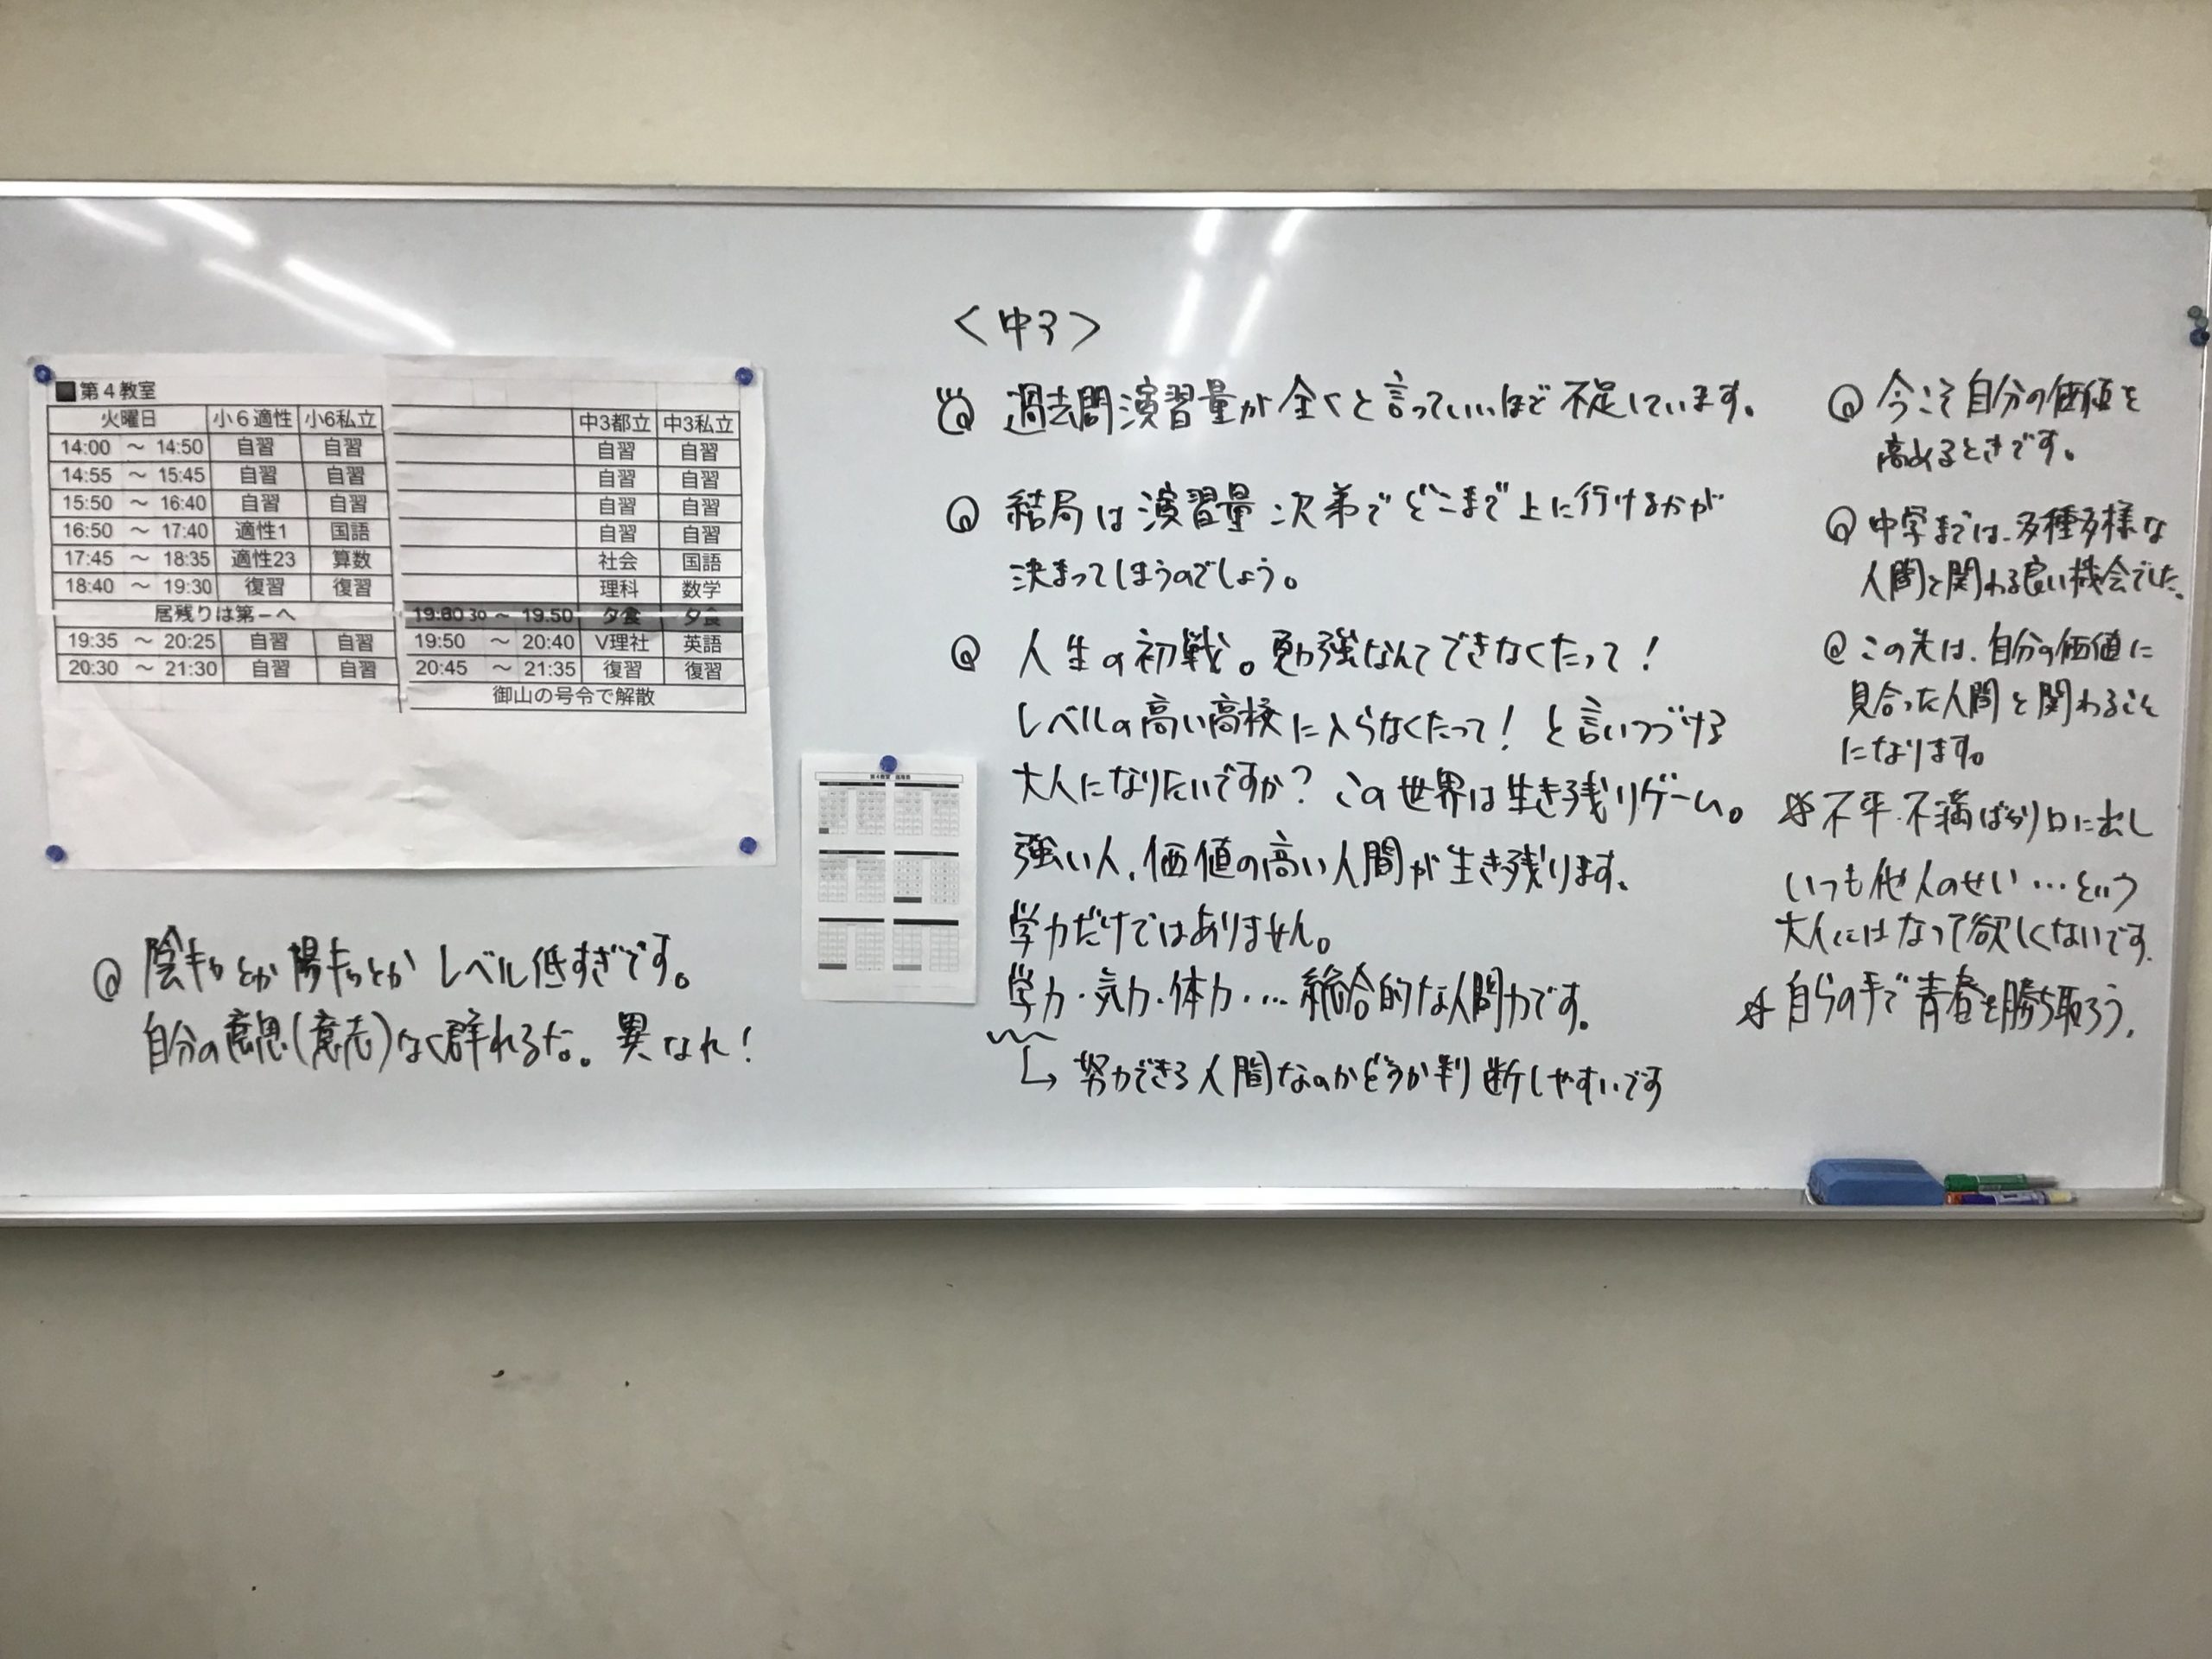 ■第4教室
火曜日 小6適性 小6私立 中3都立 中3私立
14:00 ～ 14:50 自習 自習 自習 自習
14:55 ～ 15:45 自習 自習 自習 自習
15:50 ～ 16:40 自習 自習 自習 自習
16:50 ～ 17:40 適性1 国語 自習 自習
17:45 ～ 18:35 適性23 算数 社会 国語
18:40 ～ 19:30 復習 復習 理科 数学
居残りは第一へ
～ 19:50 夕食 夕食
19:35 ～ 20:25 自習 自習 19:50 ～ 20:40 V理社 英語
20:30 ～ 21:30 自習 自習 20:45 ～ 21:35 復習 復習
御山の号令で解散
陰キャとか陽キャとか レベル低すぎです。
自分の意思(意志)なく群れるな。異なれ!
<中3>
過去問演習量が全くと言っていいほど不足しています。
結局は演習量次第でどこまで上に行けるかが
決まってしまうのでしょう。
人生の初戦。勉強なんてできなくたって!
レベルの高い高校に入らなくたって! と言いつづける
大人になりたいですか? この世界は生き残りゲーム。
強い人、価値の高い人間が生き残ります。
学力だけではありません。
学力・気力・体力・… 総合的な人間力です。
↳ 努力できる人間なのかどうか判断しやすいです
今こそ自分の価値を
高めるときです。
中学までは、多種多様な
人間と関わる良い機会でした。
この先は、自分の価値に
見合った人間と関わること
になります。
☆不平・不満ばかり口に出し
いつも他人のせい…という
大人にはなって欲しくないです。
☆自らの手で青春を勝ち取ろう。